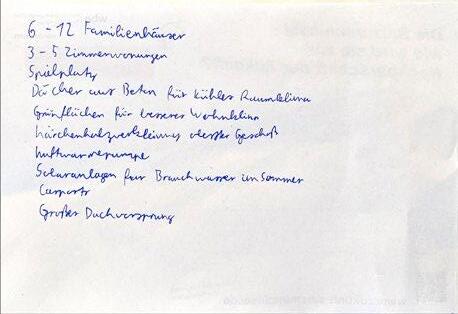 6 - 12 Familienhäuser
3 - 5 Zimmerwonungen
Spielplatz
Dächer aus Beton für kühles Raumklima
Grünflächen für besseres Wohnklima
Lärchenholzverkleidung oberster Geschoß
Luftwärmepumpe
Solaranlagen für Brauchwasser im Sommer
Carports
Großer Dachvorsprung